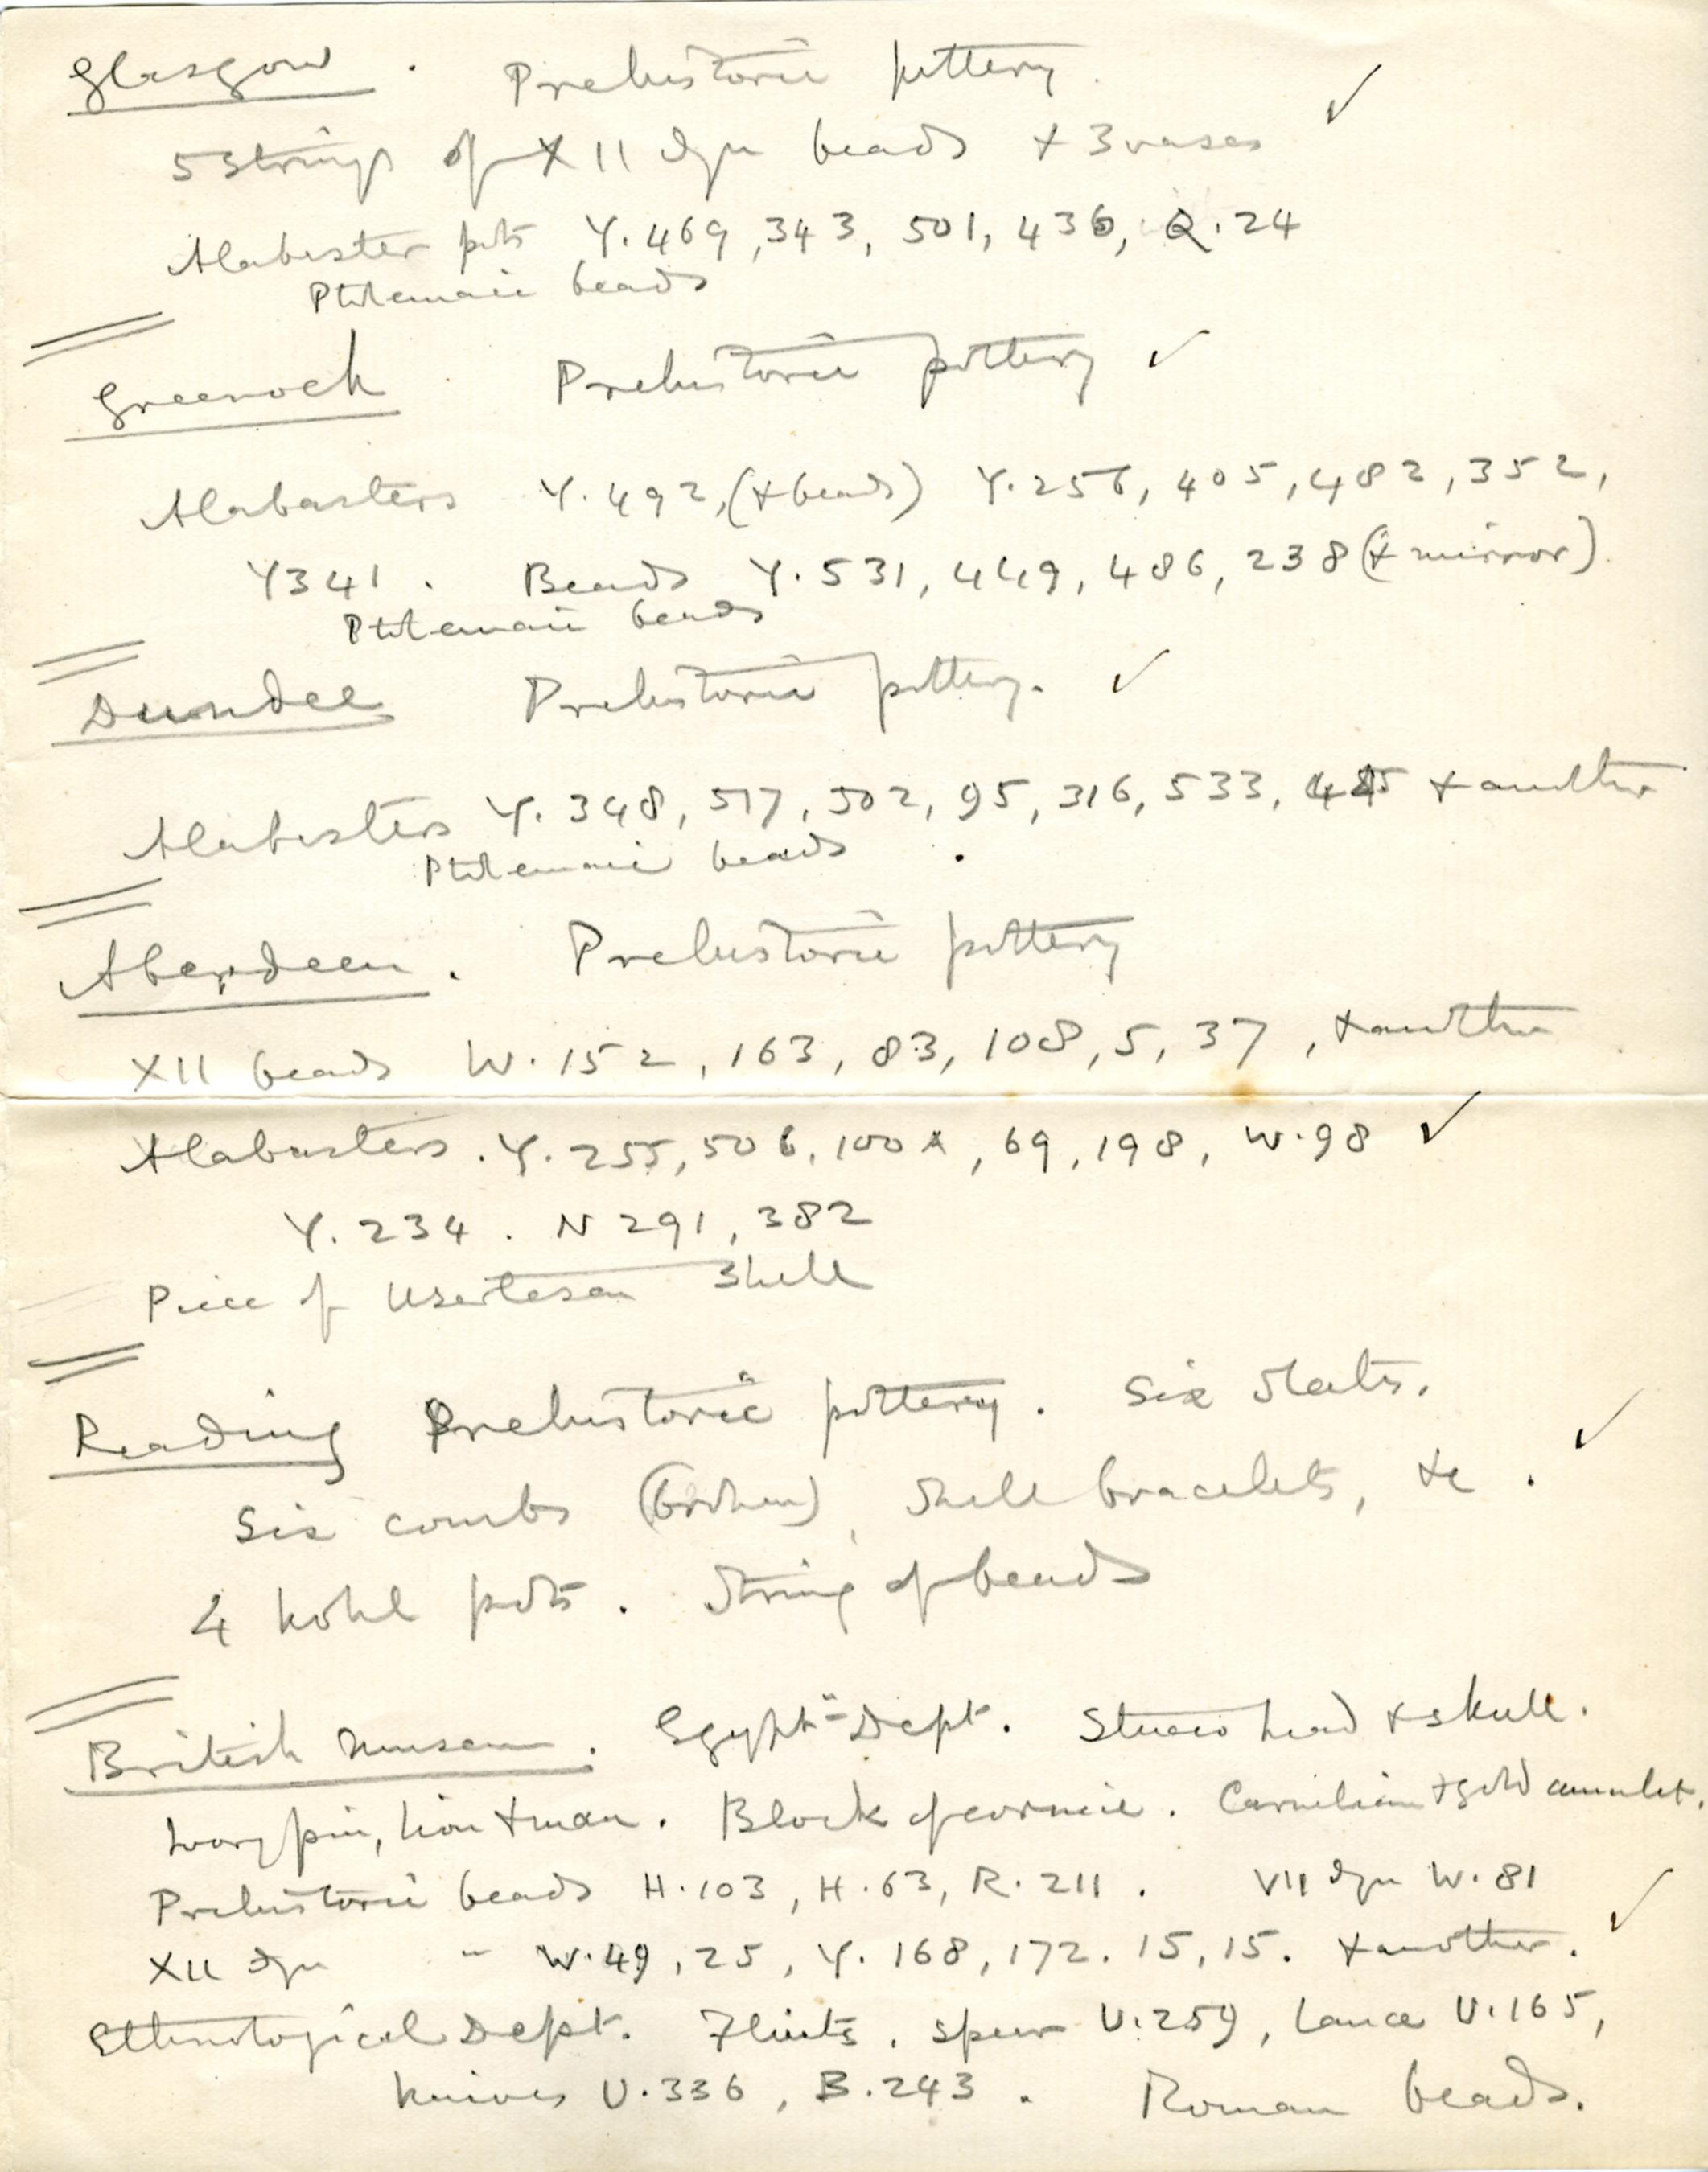 Glasgow. Prehistoric pottery. ✓
5 strings of XII dyn beads + 3 vases
Alabaster pots Y. 469, 343, 501, 436, Q. 24
Ptolemaic beads
Greenock Prehistoric pottery ✓
Alabasters Y. 492, (+ beads) Y. 256, 405, 482, 352,
Y341. Beads Y. 531, 449, 486, 238 (+ mirror)
Ptolemaic beads
Dundee Prehistoric pottery. ✓
Alabasters Y. 348, 517, 502, 95, 316, 533, + another
Ptolemaic beads
Aberdeen. Prehistoric pottery
XII beads W. 152, 163, 83, 108, 5, 37, + another
Alabasters. Y. 255, 506, 100A, 69, 198, W. 98 ✓
Y. 234. N 291, 382
Piece of Usertesen Shell
Reading Prehistoric pottery. Six slates. ✓
Six combs (broken), Shell bracelets, &c.
4 kohl pots. String of beads
British Museum. Egypt- Dept. Stucco head & skull.
Ivory pin, lion & man. Block of cornice. Carnelian & gold amulet.
Prehistoric beads H. 103, H. 63, R. 211. VII dyn W. 81 ✓
XII dyn " W. 49, 25, Y. 168, 172. 15, 15. + another.
Ethnological Dept. Flints. spear U. 259, Lance U. 165,
knives U. 336, B. 243. Roman beads.